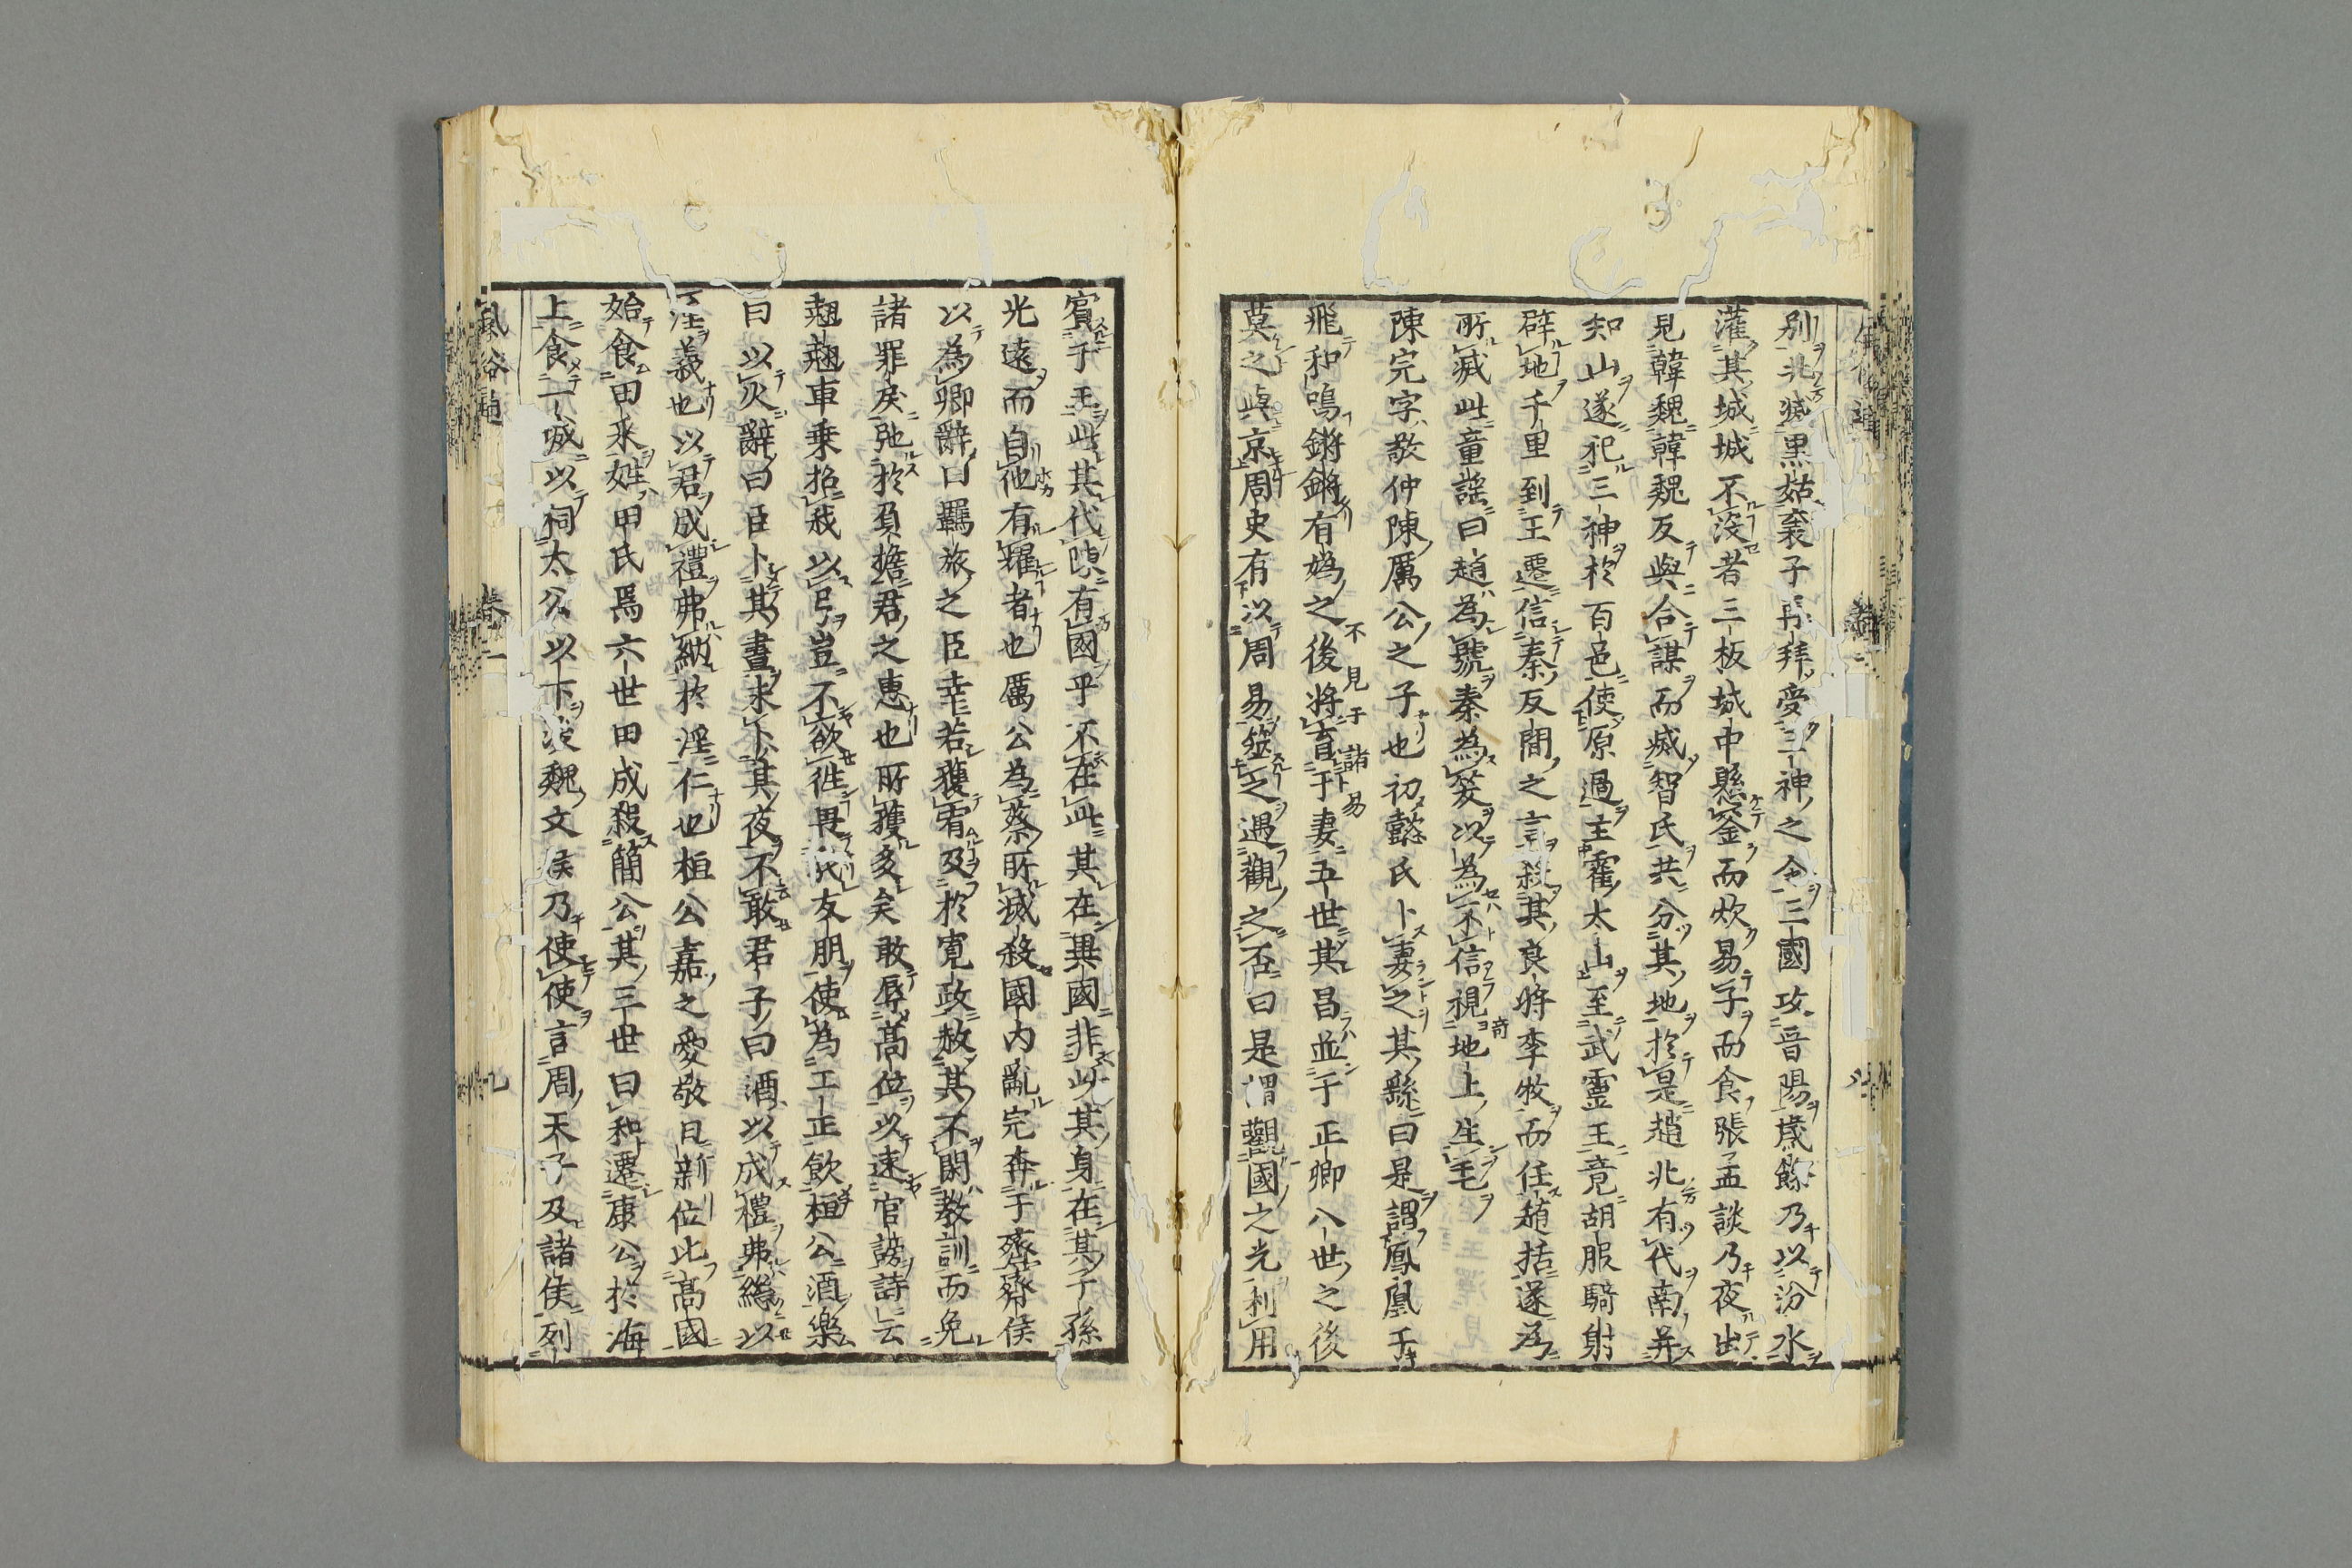 別北滅黒姑襄子再拜受三神之令三國攻晉陽歳餘乃以汾水
灌其城城不没者三板城中懸釜而炊易子而食張孟談乃夜出
見韓魏韓魏反與合謀而滅智氏共分其地於是趙北有代南并
知山遂祀三神於百邑使原過主霍太山至武靈王竟胡服騎射
辟地千里到王遷信秦反間之言殺其良將李牧而任趙括遂為
所滅此童謡曰趙為號秦為笑以為不信視地上生毛
陳完字敬仲陳厲公之子也初懿氏卜妻之其繇曰是謂鳳凰于
飛和鳴鏘鏘有媯之後將育于妻五世其昌並于正卿八世之後
不見于諸易
莫之與京周史有以周易筮之遇觀之否曰是謂觀國之光利用
賓于王此其代陳有國乎不在此其在異國非此其身在其子孫
光遠而自他有耀者也厲公為蔡所滅殺國内亂完奔于齊齊侯
以為卿辭曰羈旅之臣幸若獲宥及於寛政赦其不閑教訓而免
諸罪戻弛於負擔君之恵也所獲多矣敢辱髙位以速官謗詩云
翹翹車乗招我以弓豈不欲徃畏我友朋使為工正飲桓公酒樂
曰以火辭曰臣卜其晝未卜其夜不敢君子曰酒以成禮弗繼以
淫義也以君成禮弗納於淫仁也桓公嘉之愛敬日新位此髙國
始食田采姓田氏焉六世田成殺簡公其三世曰和遷康公於海
上食一城以祠太公以下後魏文侯乃使使言周天子及諸侯列
風俗通
卷一
九